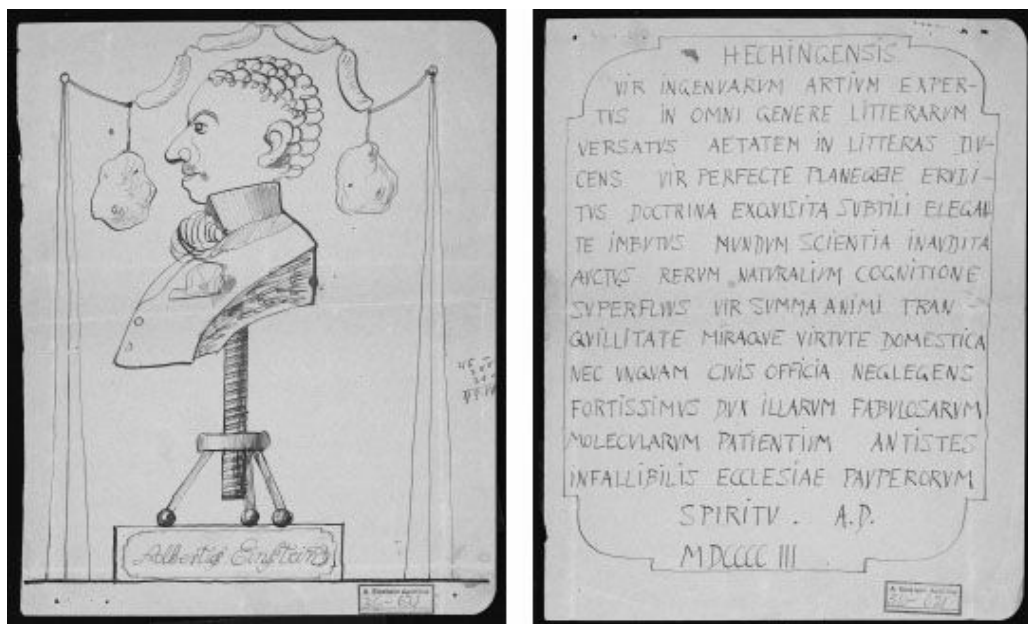 Albertus Einstein
HECHINGENSIS
VIR INGENVARVM ARTIVM EXPER-
TVS IN OMNI GENERE LITTERARVM
VERSATVS AETATEM IN LITTERAS DV-
CENS VIR PERFECTE PLANEQVE ERVDI-
TVS DOCTRINA EXQVISITA SVBTILI ELEGAN
TE IMBVTVS MVNDVM SCIENTIA INAVDITA
AVCTVS RERVM NATVRALIVM COGNITIONE
SVPERFLVVS VIR SVMMA ANIMI TRAN
QVILLITATE MIRAQVE VIRTVTE DOMESTICA
NEC VNQVAM CIVIS OFFICIA NEGLEGENS
FORTISSIMVS DVX ILLARVM FABVLOSARVM
MOLECVLARVM PATIENTIVM ANTISTES
INFALLIBILIS ECCLESIAE PAVPERORVM
SPIRITV. A.D.
MDCCCC III